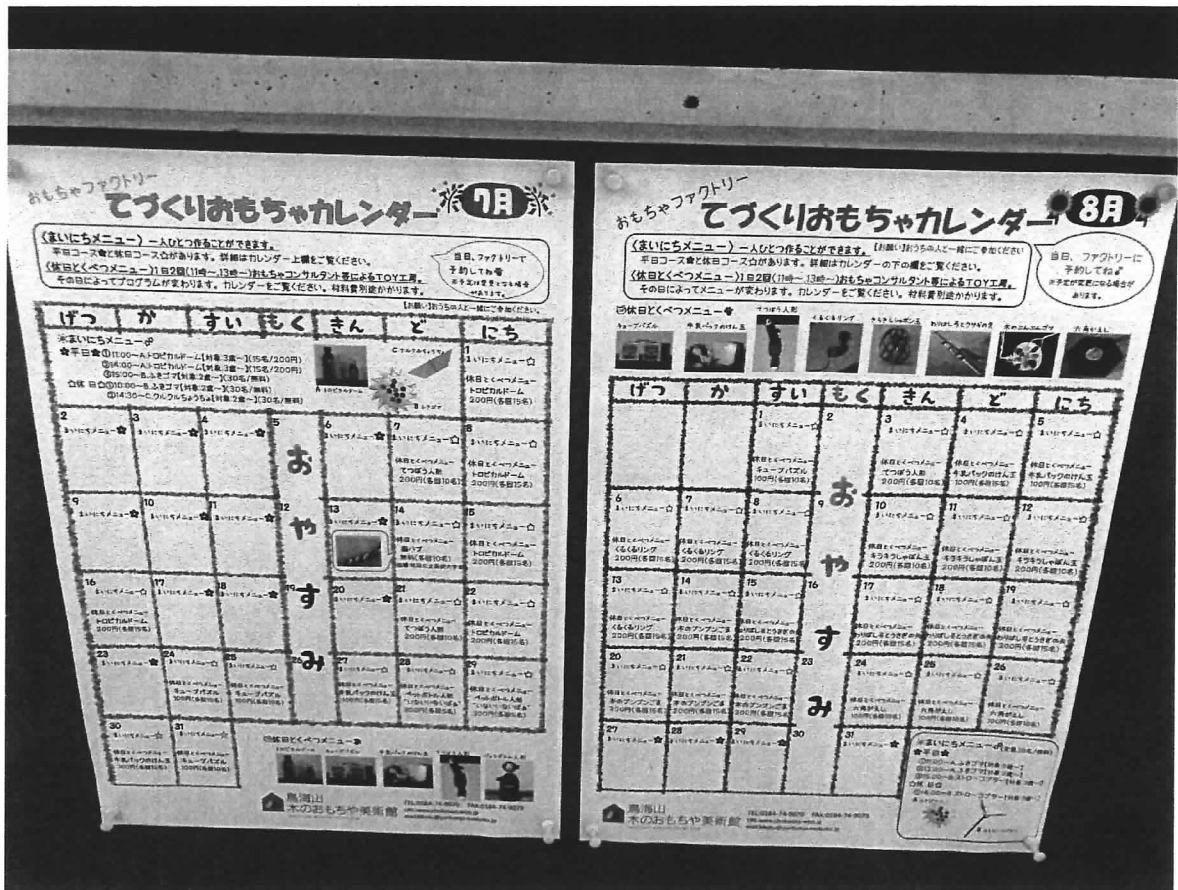 おもちゃファクトリー
てづくりおもちゃカレンダー
7月
〈まいにちメニュー〉一人ひとつ作ることができます。
平日コース✿と休日コース✩があります。詳細はカレンダー上欄をご覧ください。
〈休日とくべつメニュー〉1日2回(11時〜、13時〜)おもちゃコンサルタント等によるTOY工房。
その日によってプログラムが変わります。カレンダーをご覧ください。材料費別途かかります。
当日、ファクトリーで
予約してね
※予定は変更となる場合
があります。
【お願い】おうちの人と一緒にご参加ください。
げつ か すい もく きん ど にち
※まいにちメニュー
✿平日✿①11:00〜A.トロピカルドーム【対象:3歳〜】(15名/200円)
②14:00〜A.トロピカルドーム【対象:3歳〜】(15名/200円)
③15:00〜B.ふきゴマ【対象:2歳〜】(30名/無料)
✩休日✩①10:00〜B.ふきゴマ【対象:2歳〜】(30名/無料)
②14:30〜C.クルクルちょうちょ【対象:2歳〜】(30名/無料)
A トロピカルドーム
B ふきゴマ
C クルクルちょうちょ
1
まいにちメニュー✩
休日とくべつメニュー
トロピカルドーム
200円(各回15名)
2
まいにちメニュー✿
3
まいにちメニュー✿
4
まいにちメニュー✿
5
6
まいにちメニュー✿
7
まいにちメニュー✩
休日とくべつメニュー
てつぼう人形
200円(各回10名)
8
まいにちメニュー✩
休日とくべつメニュー
トロピカルドーム
200円(各回15名)
おやすみ
9
まいにちメニュー✿
10
まいにちメニュー✿
11
まいにちメニュー✿
12
13
まいにちメニュー✿
14
まいにちメニュー✩
休日とくべつメニュー
無料(各回10名)
15
まいにちメニュー✩
休日とくべつメニュー
トロピカルドーム
200円(各回15名)
16
まいにちメニュー✩
休日とくべつメニュー
トロピカルドーム
200円(各回15名)
17
まいにちメニュー✿
18
まいにちメニュー✿
19
20
まいにちメニュー✿
21
まいにちメニュー✩
休日とくべつメニュー
てつぼう人形
200円(各回10名)
22
まいにちメニュー✩
休日とくべつメニュー
トロピカルドーム
200円(各回15名)
23
まいにちメニュー✿
24
まいにちメニュー✩
休日とくべつメニュー
キューブパズル
100円(各回10名)
25
まいにちメニュー✩
休日とくべつメニュー
キューブパズル
100円(各回10名)
26
27
まいにちメニュー✩
休日とくべつメニュー
牛乳パックのけん玉
28
まいにちメニュー✩
休日とくべつメニュー
ペットボトル人形
"いないいないばぁ"
29
まいにちメニュー✩
休日とくべつメニュー
ペットボトル人形
"いないいないばぁ"
30
まいにちメニュー✩
休日とくべつメニュー
牛乳パックのけん玉
31
まいにちメニュー✩
休日とくべつメニュー
キューブパズル
休日とくべつメニュー
トロピカルドーム キューブパズル 牛乳パックのけん玉 てつぼう人形 ペットボトル人形
鳥海山
木のおもちゃ美術館
TEL:0184-74-9070 FAX:0184-74-9079
おもちゃファクトリー
てづくりおもちゃカレンダー
8月
〈まいにちメニュー〉一人ひとつ作ることができます。【お願い】おうちの人と一緒にご参加ください
平日コース✿と休日コース✩があります。詳細はカレンダーの下の欄をご覧ください。
〈休日とくべつメニュー〉1日2回(11時〜、13時〜)おもちゃコンサルタント等によるTOY工房。
その日によってメニューが変わります。カレンダーをご覧ください。材料費別途かかります。
当日、ファクトリーに
予約してね
※予定が変更になる場合が
あります。
休日とくべつメニュー
キューブパズル 牛乳パックのけん玉 てつぼう人形 くるくるリング キラキラしゃぼん玉 木のぶんぶんゴマ 六角がえし
げつ か すい もく きん ど にち
1
まいにちメニュー✩
休日とくべつメニュー
キューブパズル
100円(各回10名)
2
3
まいにちメニュー✩
休日とくべつメニュー
てつぼう人形
200円(各回10名)
4
まいにちメニュー✩
休日とくべつメニュー
牛乳パックのけん玉
100円(各回15名)
5
まいにちメニュー✩
休日とくべつメニュー
牛乳パックのけん玉
100円(各回15名)
おやすみ
6
まいにちメニュー✩
休日とくべつメニュー
くるくるリング
200円(各回15名)
7
まいにちメニュー✩
休日とくべつメニュー
くるくるリング
200円(各回15名)
8
まいにちメニュー✩
休日とくべつメニュー
くるくるリング
200円(各回15名)
9
10
まいにちメニュー✩
休日とくべつメニュー
キラキラしゃぼん玉
200円(各回10名)
11
まいにちメニュー✩
休日とくべつメニュー
キラキラしゃぼん玉
200円(各回10名)
12
まいにちメニュー✩
休日とくべつメニュー
キラキラしゃぼん玉
200円(各回10名)
13
まいにちメニュー✩
休日とくべつメニュー
くるくるリング
200円(各回15名)
14
まいにちメニュー✩
休日とくべつメニュー
木のブンブンごま
200円(各回15名)
15
まいにちメニュー✩
休日とくべつメニュー
200円(各回15名)
16
17
まいにちメニュー✩
休日とくべつメニュー
200円(各回15名)
18
まいにちメニュー✩
休日とくべつメニュー
200円(各回15名)
19
まいにちメニュー✩
休日とくべつメニュー
200円(各回15名)
20
まいにちメニュー✩
休日とくべつメニュー
木のブンブンごま
200円(各回15名)
21
まいにちメニュー✩
休日とくべつメニュー
木のブンブンごま
200円(各回15名)
22
まいにちメニュー✩
休日とくべつメニュー
木のブンブンごま
200円(各回15名)
23
24
まいにちメニュー✩
休日とくべつメニュー
六角がえし
100円(各回10名)
25
まいにちメニュー✩
休日とくべつメニュー
六角がえし
100円(各回10名)
26
まいにちメニュー✩
休日とくべつメニュー
六角がえし
100円(各回10名)
27
まいにちメニュー✿
28
まいにちメニュー✿
29
まいにちメニュー✿
30
31
まいにちメニュー✿
※まいにちメニュー
✿平日✿
鳥海山
木のおもちゃ美術館
TEL:0184-74-9070 FAX:0184-74-9079